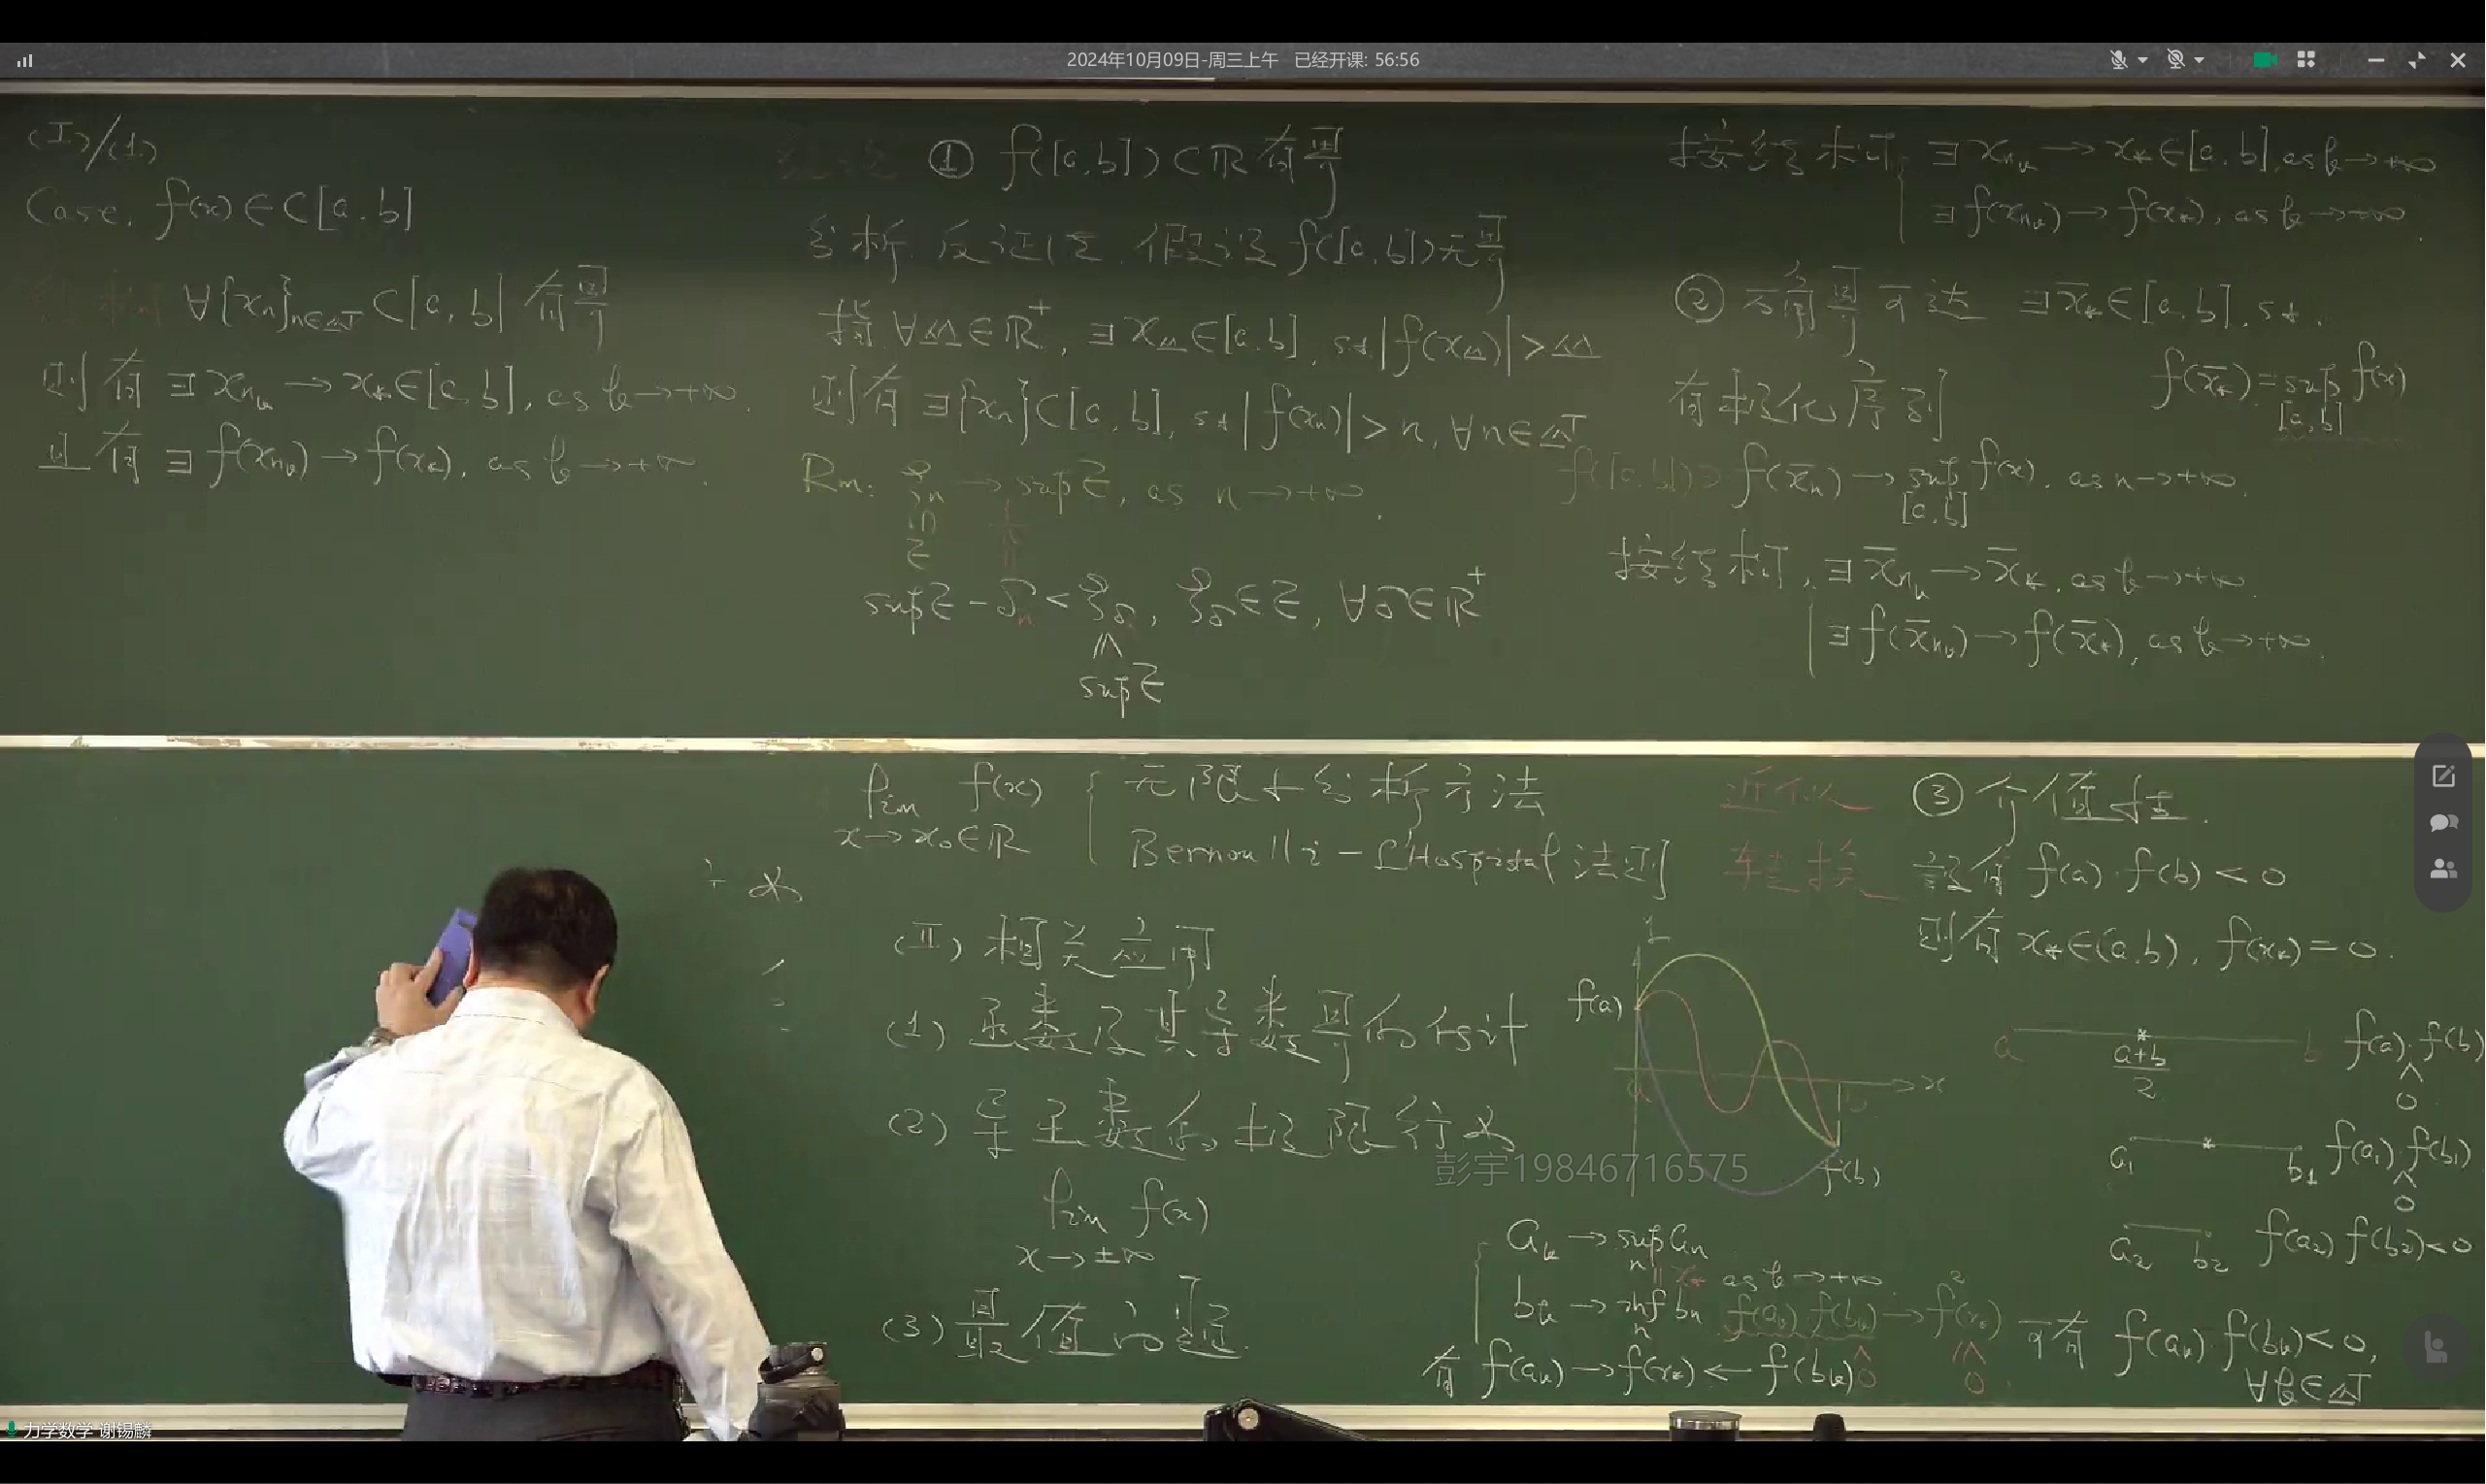 2024年10月09日-周三上午 已经开课: 56:56
(I)/(1)
Case. f(x)∈C[a,b]
∀{xn}n∈N⊂[a,b] 有界
则有 ∃xnk→x*∈[a,b], as k→+∞.
且有 ∃f(xnk)→f(x*), as k→+∞.
① f([a,b])⊂ℝ有界
分析. 反证法. 假设 f([a,b])无界
指 ∀M∈ℝ⁺, ∃xM∈[a,b], s.t. |f(xM)|>M
则有 ∃{xn}⊂[a,b], s.t. |f(xn)|>n, ∀n∈N
Rm: ξn→supE, as n→+∞.
∈
E
supE-δn<ξδ, ξδ∈E, ∀δ∈ℝ⁺
≤
supE
按结构 ∃xnk→x*∈[a,b], as k→+∞
∃f(xnk)→f(x*), as k→+∞.
② 确界可达 ∃x̄*∈[a,b], s.t.
f(x̄*)=sup f(x)
[a,b]
有极化序列
f([a,b])∋f(x̄n)→sup f(x), as n→+∞.
[a,b]
按结构, ∃x̄nk→x̄*, as k→+∞.
∃f(x̄nk)→f(x̄*), as k→+∞.
lim f(x)
x→x₀∈ℝ
无限小分析方法
Bernoulli-L'Hospital法则
近似
转换
(II) 相关应用
(1) 函数及其导数界的估计
(2) 导函数的极限行为
lim f(x)
x→±∞
(3) 最值问题.
③ 介值性.
设有 f(a)·f(b)<0
则有 x*∈(a,b), f(x*)=0.
f(a)
a
x
f(b)
a
a+b
2
b
f(a)·f(b)
<
0
a₁
b₁
f(a₁)·f(b₁)
<
0
a₂ b₂ f(a₂) f(b₂)<0
ak→sup an
n
= x* as k→+∞
bk→inf bn
n
f(ak) f(bk)→f²(x*)
有 f(ak)→f(x*)←f(bk)
可有 f(ak)·f(bk)<0,
∀k∈N
彭宇19846716575
力学数学 谢锡麟